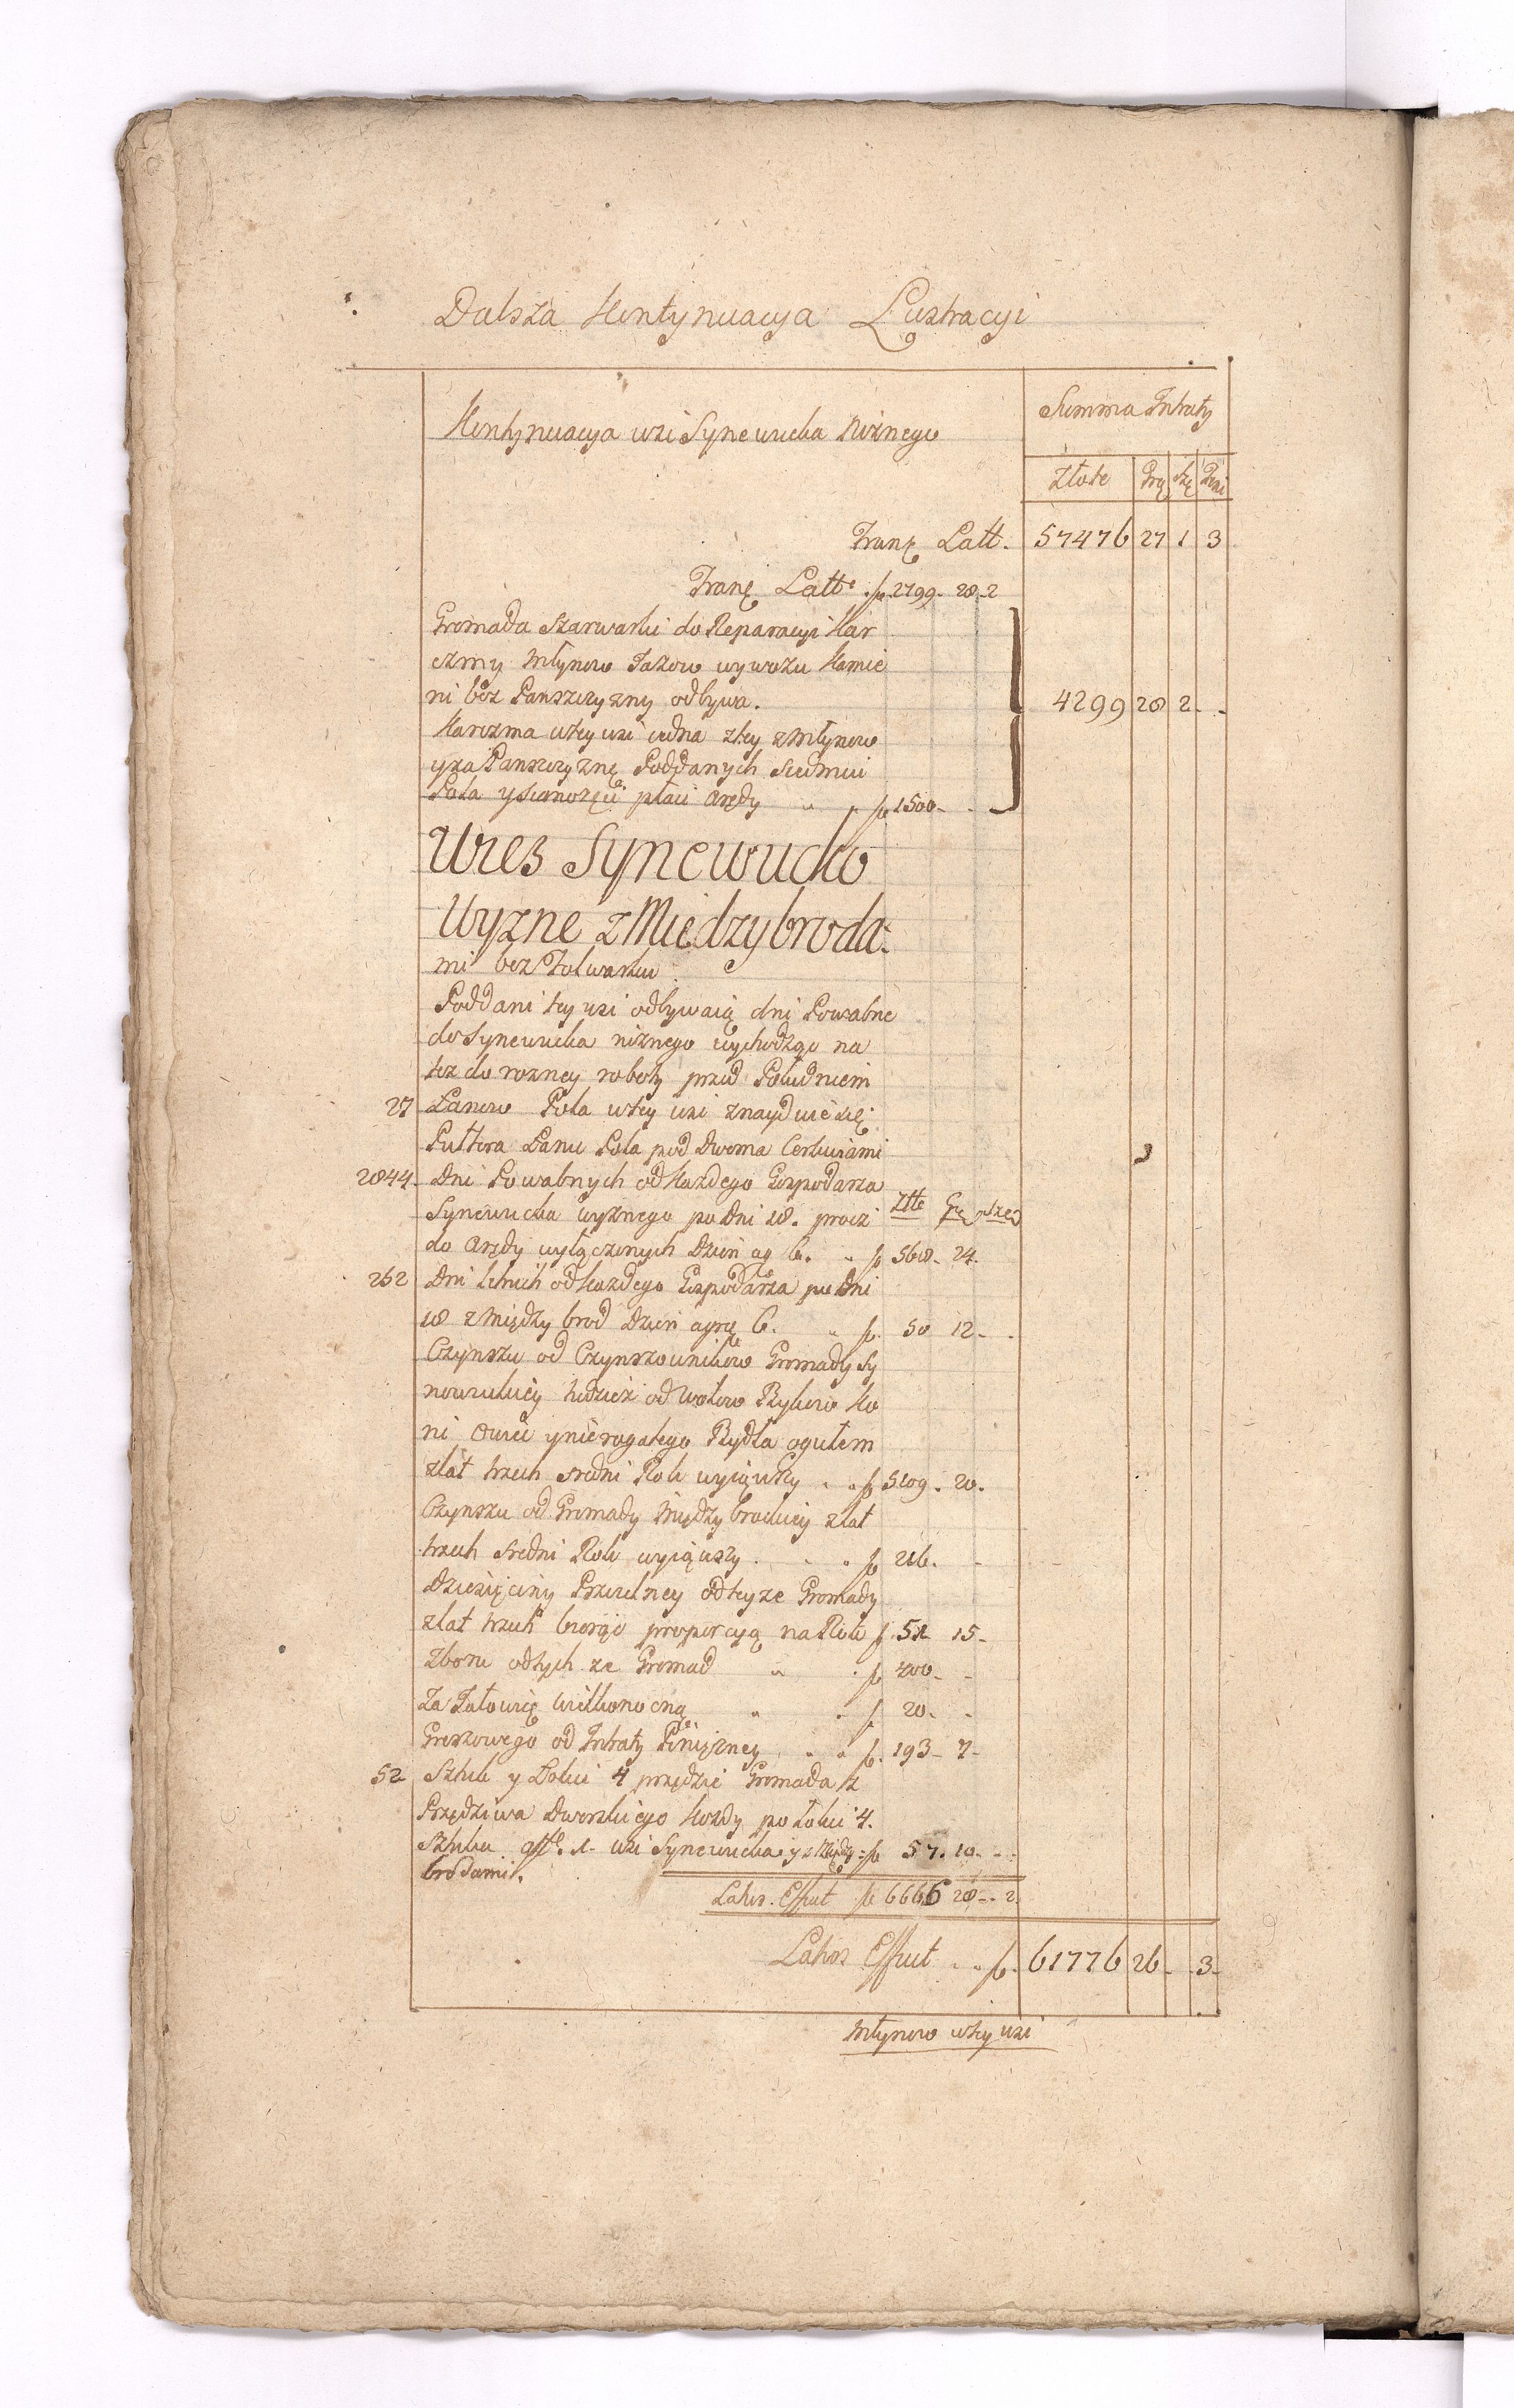 Dalsza Kontynuacya Lustracyi
Kontynuacya wsi Synewucka Niżnego
Summa Intraty
Złote Grę Szę Deni
Tranz Latt. 57476 27 1 3
Tranz Latte fl. 2799 - 28 - 2
Gromada Szarwarki do Reparacyi Kar
czmy Młynow Jazow wywozu Kamie
ni bez Panszczyzny odbywa.
4299 28 2 - -
Karczma wtey wsi iedna ztey z Młynow
y za Panszczyznę Poddanych Siedmiu
Pola y Sianożęci płaci Arędy " " fl 1500 - -
Wies Synewucko
Wyzne z Międzybroda:
mi bez Folwarku
Poddani tey wsi odbywaią dni Powabne
do Synewucka niżnego wychodząc na
też do rozney roboty przed Południem
27 Łanow Pola wtey wsi znayduie się:
Pułtora Łanu Pola pod Dwoma Cerkwiami
2844 - Dni Powabnych od Każdego Gospodarza
Synewucka wyznego po Dni 18. procz Złłe Gr Sze
do Arędy wyłączonych Dzień ag 6. " fl 568 - 24.
252 Dni letnich od każdego Gospodarza po Dni
18 z Między brod Dzień agrę 6. " fl. 50 12 - -
Czynszu od Czynszownikow Gromady Sy
nowuckiey tudzież od Wołow Bykow Ko
ni Owiec y nierogatego Bydła ogułem
z lat trzech sredni Rok wyiąwszy . . fl 5109 . 20.
Czynszu od Gromady Międzybrodzkiey z lat
trzech sredni Rok wyiąwszy . . . fl 216. -
Dziesięciny Pszczelney od teyze Gromady
z lat trzech biorąc proporcyą na Rok f. 51 15 -
Zboru odtych ze Gromad " . fl 400 - -
Za Jałowię wielkonocną " . f 20. -
Groszowego od Intraty Pieniężney . " " fl. 193 - 7 -
52 Sztuk y Łokci 4 przędzie Gromada z
Przędziwa Dworskiego Kożdy po Łokci 4.
Sztuka afl. 1 - wsi Synewucka y z Między = fl 57. 10 - -
brodami.
Latus. Effect fl 6666 28 - . 2.
Latus Effect . . fl. 61776 26 - - 3 -
Młynow wtey wsi